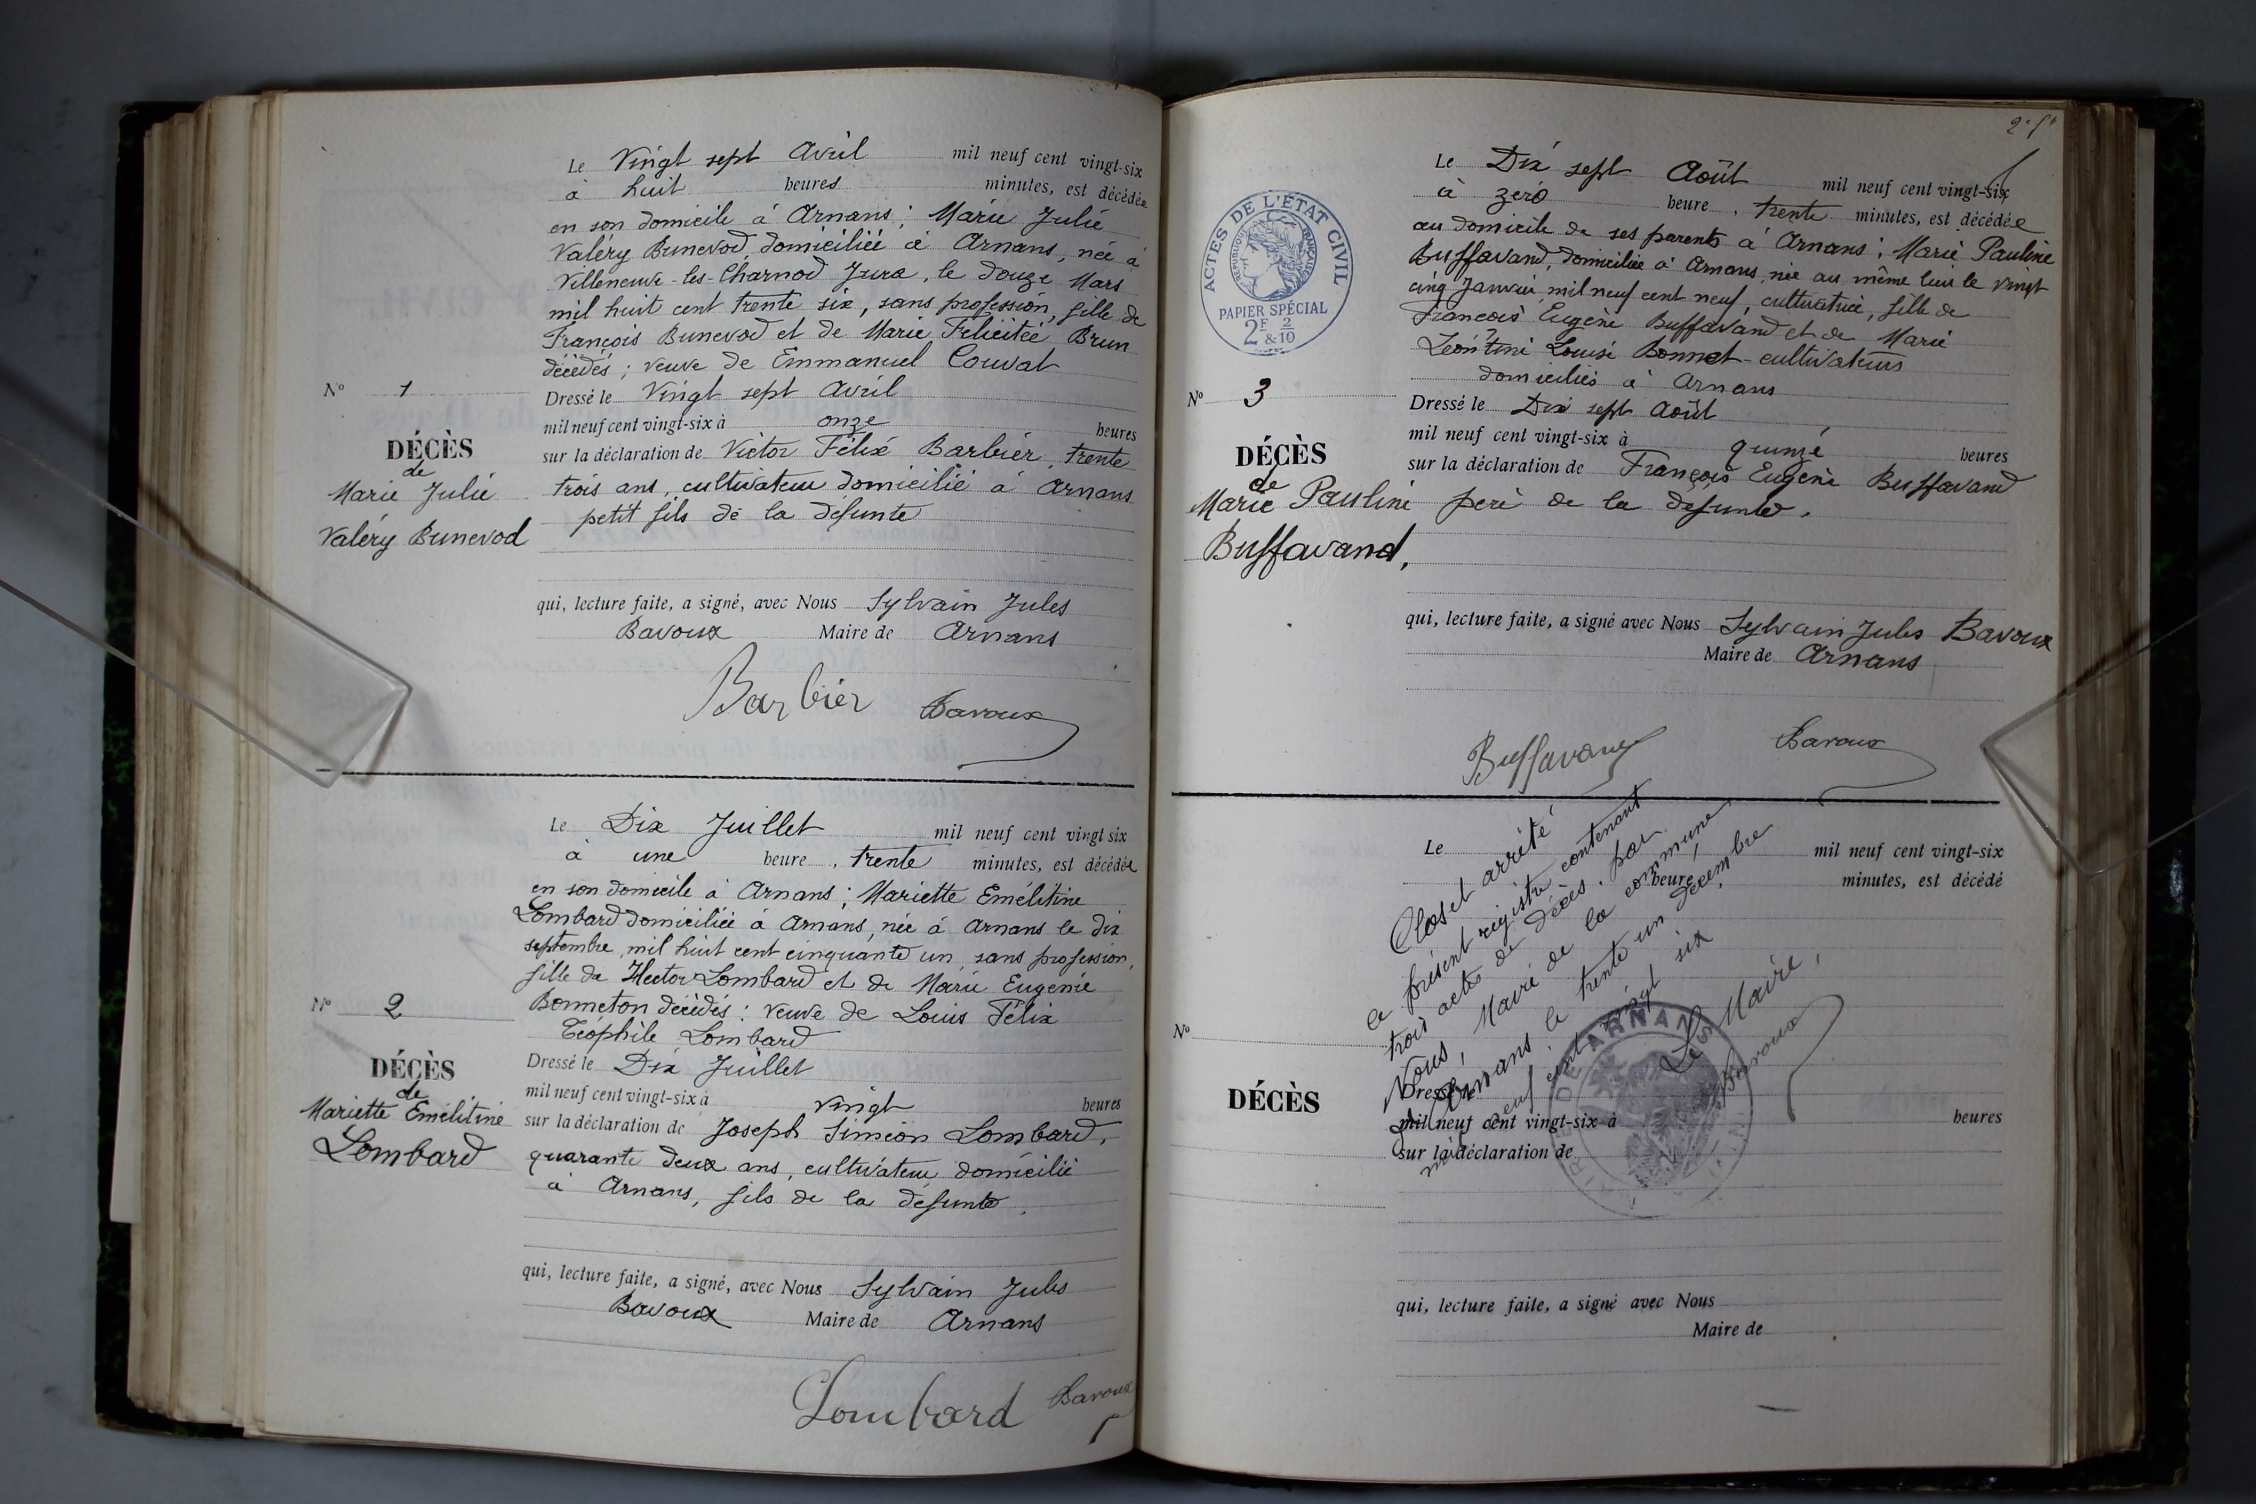 Le Vingt sept Avril mil neuf cent vingt-six
à huit heures minutes, est décédée
en son domicile à Arnans ; Marie Julie
Valéry Bunevod, domiciliée à Arnans, née à
Villeneuve-les-Charnod Jura, le douze Mars
mil huit cent trente six, sans profession, fille de
François Bunevod et de Marie Felicitée Brun
décédés ; veuve de Emmanuel Couvat
No 1
Dressé le Vingt sept Avril
mil neuf cent vingt-six à onze heures
DÉCÈS
de
Marie Julie
Valéry Bunevod
sur la déclaration de Victor Félix Barbier, trente
trois ans, cultivateur domicilié à Arnans
petit fils de la défunte
qui, lecture faite, a signé, avec Nous Sylvain Jules
Bavoux Maire de Arnans
Barbier Bavoux
Le Dix Juillet mil neuf cent vingt six
à une heure, trente minutes, est décédée
en son domicile à Arnans ; Mariette Emélitine
Lombard domiciliée à Arnans, née à Arnans le dix
septembre, mil huit cent cinquante un, sans profession,
fille de Hector Lombard et de Marie Eugénie
Bonneton décédés : veuve de Louis Félix
Téophile Lombard
No 2
Dressé le Dix Juillet
mil neuf cent vingt-six à vingt heures
DÉCÈS
de
Mariette Emélitine
Lombard
sur la déclaration de Joseph Siméon Lombard,
quarante deux ans, cultivateur domicilié
à Arnans, fils de la défunte.
qui, lecture faite, a signé, avec Nous Sylvain Jules
Bavoux Maire de Arnans
Lombard Bavoux
ACTES DE L'ÉTAT CIVIL
RÉPUBLIQUE FRANÇAISE
PAPIER SPÉCIAL
2F & 2/10
Le Dix sept Août mil neuf cent vingt-six
à zéro heure, trente minutes, est décédée
au domicile de ses parents à Arnans ; Marie Pauline
Buffavand, domiciliée à Arnans, née au même lieu le vingt
cinq Janvier mil neuf cent neuf, cultivatrice, fille de
Francois Eugène Buffavand et de Marie
Léontine Louise Bonnet cultivateurs
domiciliés à Arnans
No 3
Dressé le Dix sept Août
mil neuf cent vingt-six à quinze heures
DÉCÈS
de
Marie Pauline
Buffavand,
sur la déclaration de François Eugène Buffavand
père de la défunte.
qui, lecture faite, a signé avec Nous Sylvain Jules Bavoux
Maire de Arnans
Buffavand Bavoux
Le mil neuf cent vingt-six
heure, minutes, est décédé
Clos et arrêté
ce présent registre contenant
trois actes de décès, par
Nous, Maire de la commune
d'Arnans, le trente un décembre
mil neuf cent vingt six
Le Maire,
Bavoux
No
DÉCÈS
Dressé le
mil neuf cent vingt-six à heures
sur la déclaration de
qui, lecture faite, a signé avec Nous
Maire de